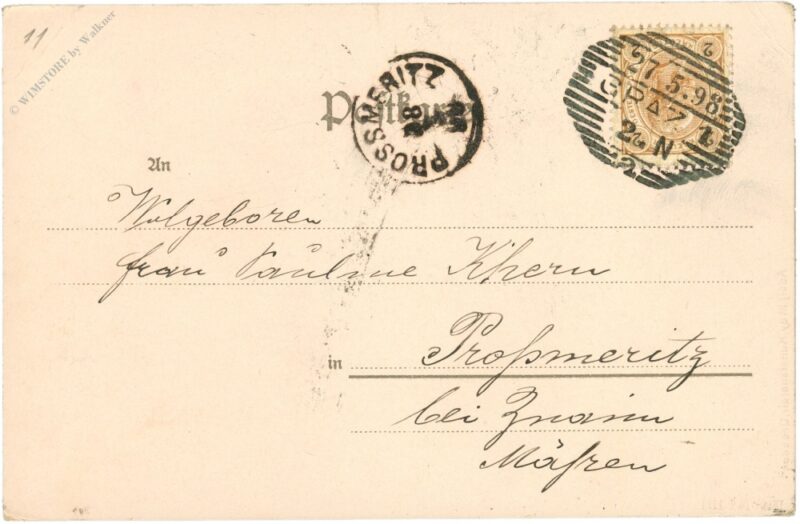 11
© WIMSTORE by Walkner
Postkarte
PROSSMERITZ
98
2
2
27.5.98
GRAZ
2 N
An
Wolgeboren
frau Pauline Khern
in Proßmeritz
bei Znaim
Mähren